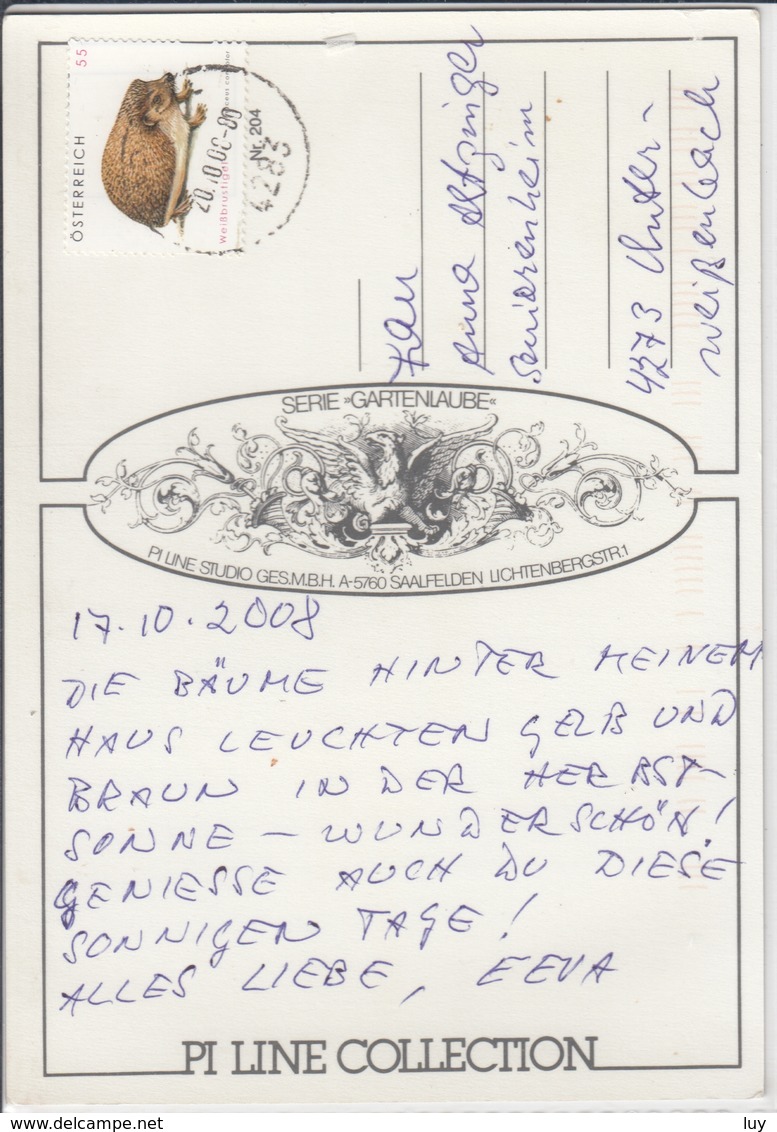 ÖSTERREICH
55
Weißbrustigel
20.10.08-8
Nr. 204
4283
Frau
Anna Altzinger
Seniorenheim
4273 Unter-
weißenbach
SERIE »GARTENLAUBE«
PI LINE STUDIO GES.M.B.H. A-5760 SAALFELDEN LICHTENBERGSTR.1
17.10.2008
DIE BÄUME HINTER MEINEM
HAUS LEUCHTEN GELB UND
BRAUN IN DER HERBST-
SONNE – WUNDERSCHÖN!
GENIESSE AUCH DU DIESE
SONNIGEN TAGE!
ALLES LIEBE, EEVA
PI LINE COLLECTION
www.delcampe.net
luy